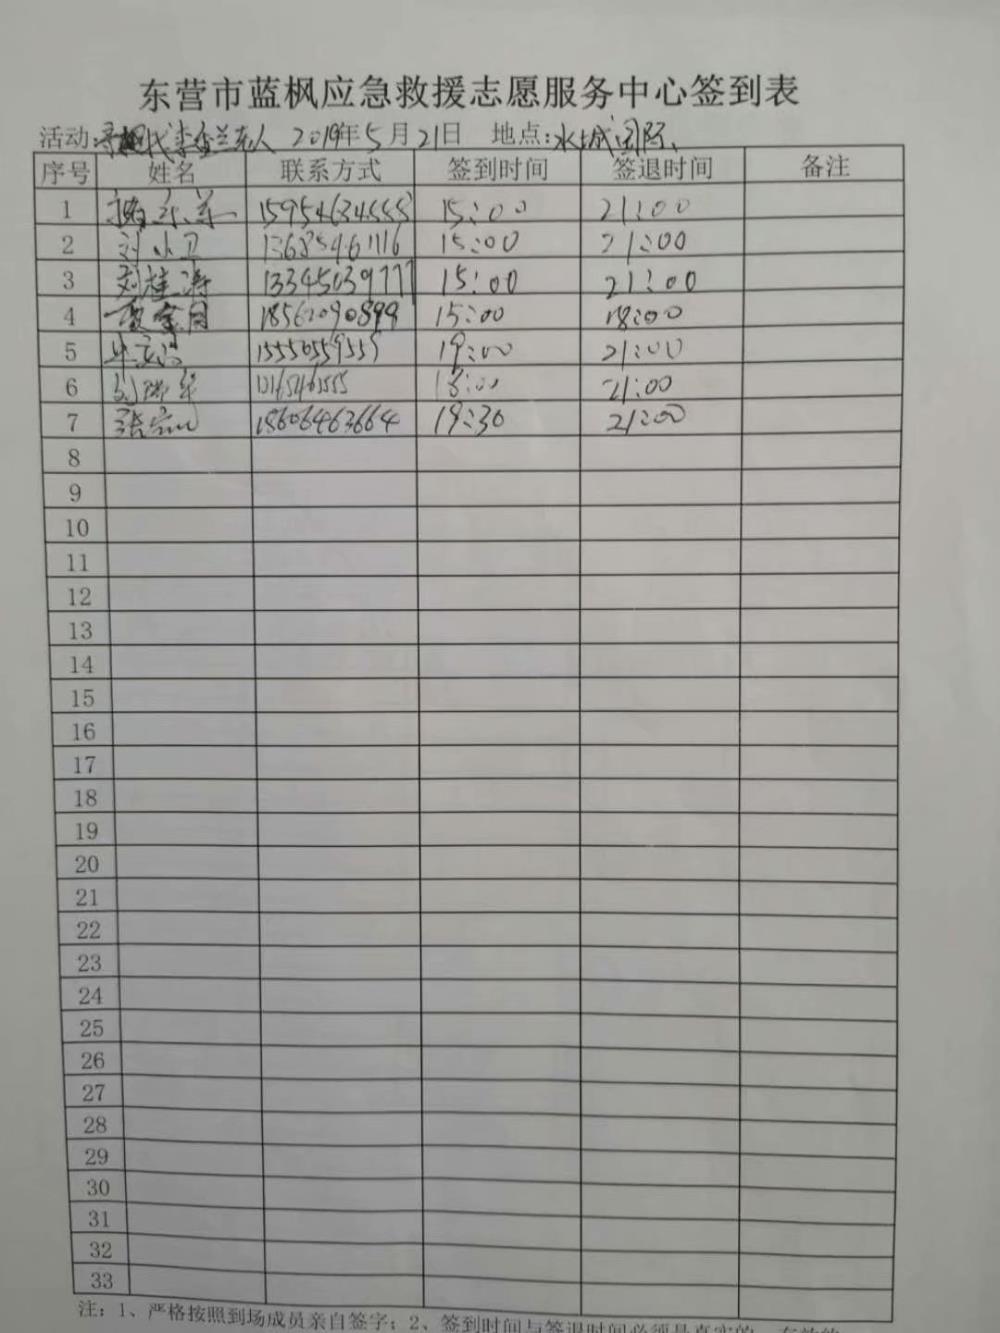 东营市蓝枫应急救援志愿服务中心签到表
活动: 老人 2019年5月21日 地点:水城国际
序号 姓名 联系方式 签到时间 签退时间 备注
1 15954634555 15:00 21:00
2 刘小卫 13685461116 15:00 21:00
3 刘桂涛 13345039777 15:00 21:00
4 18561090899 15:00 18:00
5 15550559559 19:00 21:00
6 18:00 21:00
7 18606463664 19:30 21:00
8
9
10
11
12
13
14
15
16
17
18
19
20
21
22
23
24
25
26
27
28
29
30
31
32
33
注:1、严格按照到场成员亲自签字;2、签到时间与签退时间必须是真实的、有效的